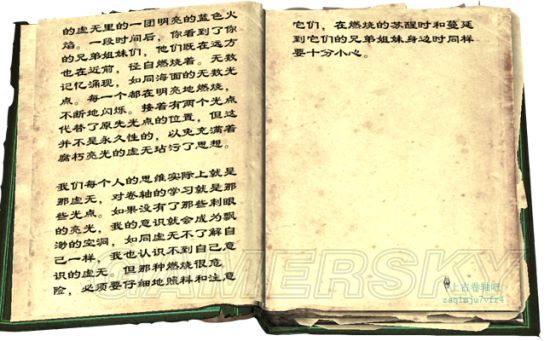 的虚无里的一团明亮的蓝色火
焰。一段时间后，你看到了你
的兄弟姐妹们，他们既在远方
也在近前，径自燃烧着。无数
记忆涌现，如同海面的无数光
点。每一个都在明亮地燃烧，
不断地闪烁。接着有两个光点
代替了原先光点的位置，但这
并不是永久性的，以免充满着
腐朽亮光的虚无玷污了思想。
我们每个人的思维实际上就是
那虚无，对卷轴的学习就是那
些光点。如果没有了那些刺眼
的亮光，我的意识就会成为飘
渺的空洞，如同虚无不了解自
己一样，我也认识不到自己意
识的虚无。但那种燃烧很危
险，必须要仔细地照料和注意
它们，在燃烧的苏醒时和蔓延
到它们的兄弟姐妹身边时同样
要十分小心。
GAMERSKY
上古卷轴吧
zaq1mju7vfr4